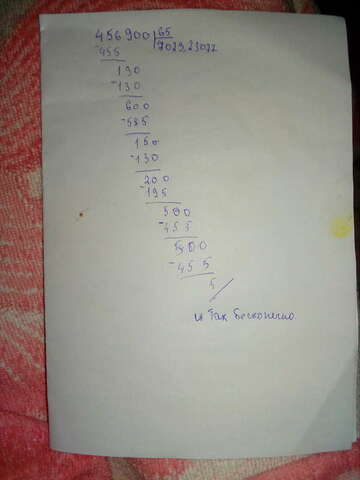 456900 65
-455 7029,23077
190
-130
600
-585
150
-130
200
-195
500
-455
500
-455
5
и так бесконечно